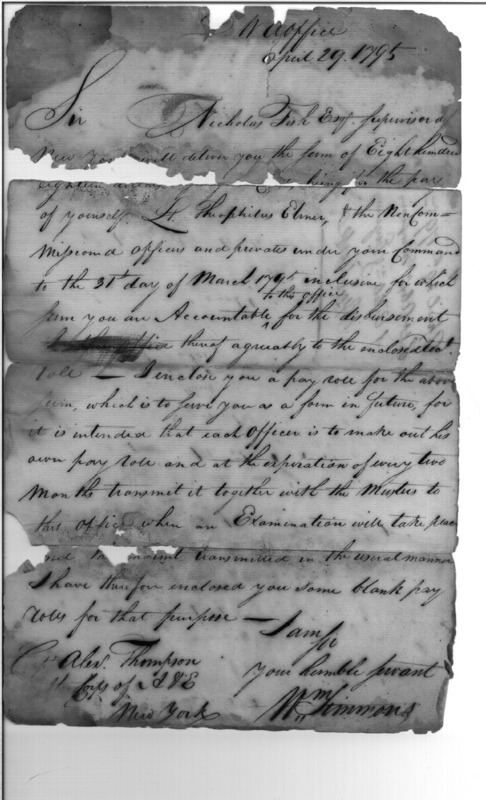 W A Office
April 29. 1795
Sir Nicholas Fish Esqr. Supervisor of
New York will deliver you the sum of Eight hundred
eighteen being for the pay
of yourself. Lt. Theophilus Elmer, & the Non Com=
missiond officers and privates under your Command
to the 31st day of March 1795 inclusive for which
to this office
sum you are Accountable for the disbursement
thereof agreeably to the inclosed
role — I enclose you a pay role for the above
sum, which is to serve you as a form in future, for
it is intended that each Officer is to make out his
own pay role and at the expiration of every two
Months transmit it together with the Musters to
this office when an Examination will take place
and the amount transmitted in the usual manner
I have therefore inclosed you some blank pay
roles for that purpose — I am Sir
Alexr. Thompson your humble servant
Corps of A & E
New York Wm Simmons